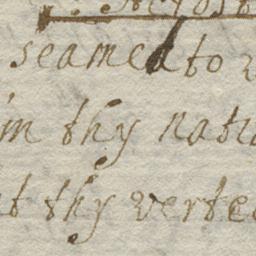 seamed to
in thy natu
t thy verte